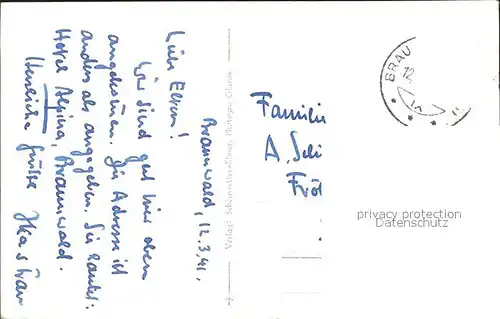 Braunwald, 12.3.41.
Liebe Eltern!
Wir sind gut hier oben
angekommen. Die Adresse ist
anders als angegeben. Sie lautet:
Hotel Alpina, Braunwald.
Herzliche Grüsse
Verlag: Schönwetter-Elmer, Photogr., Glarus
BRAU
12
Famili
A. Sch
privacy protection
Datenschutz